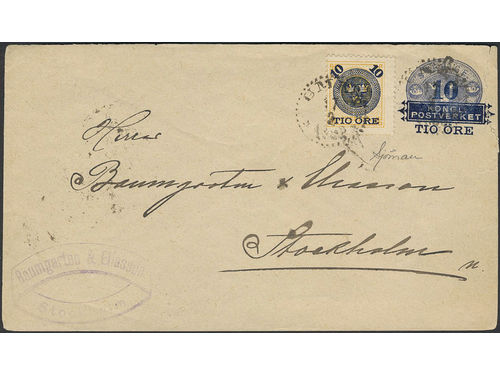 10 10
TIO ÖRE
10
KONGL.
POSTVERKET
TIO ÖRE
Sjöman
Herrar
Baumgarten & Eliasson
Stockholm
n.
Baumgarten & Eliasson
Stockholm